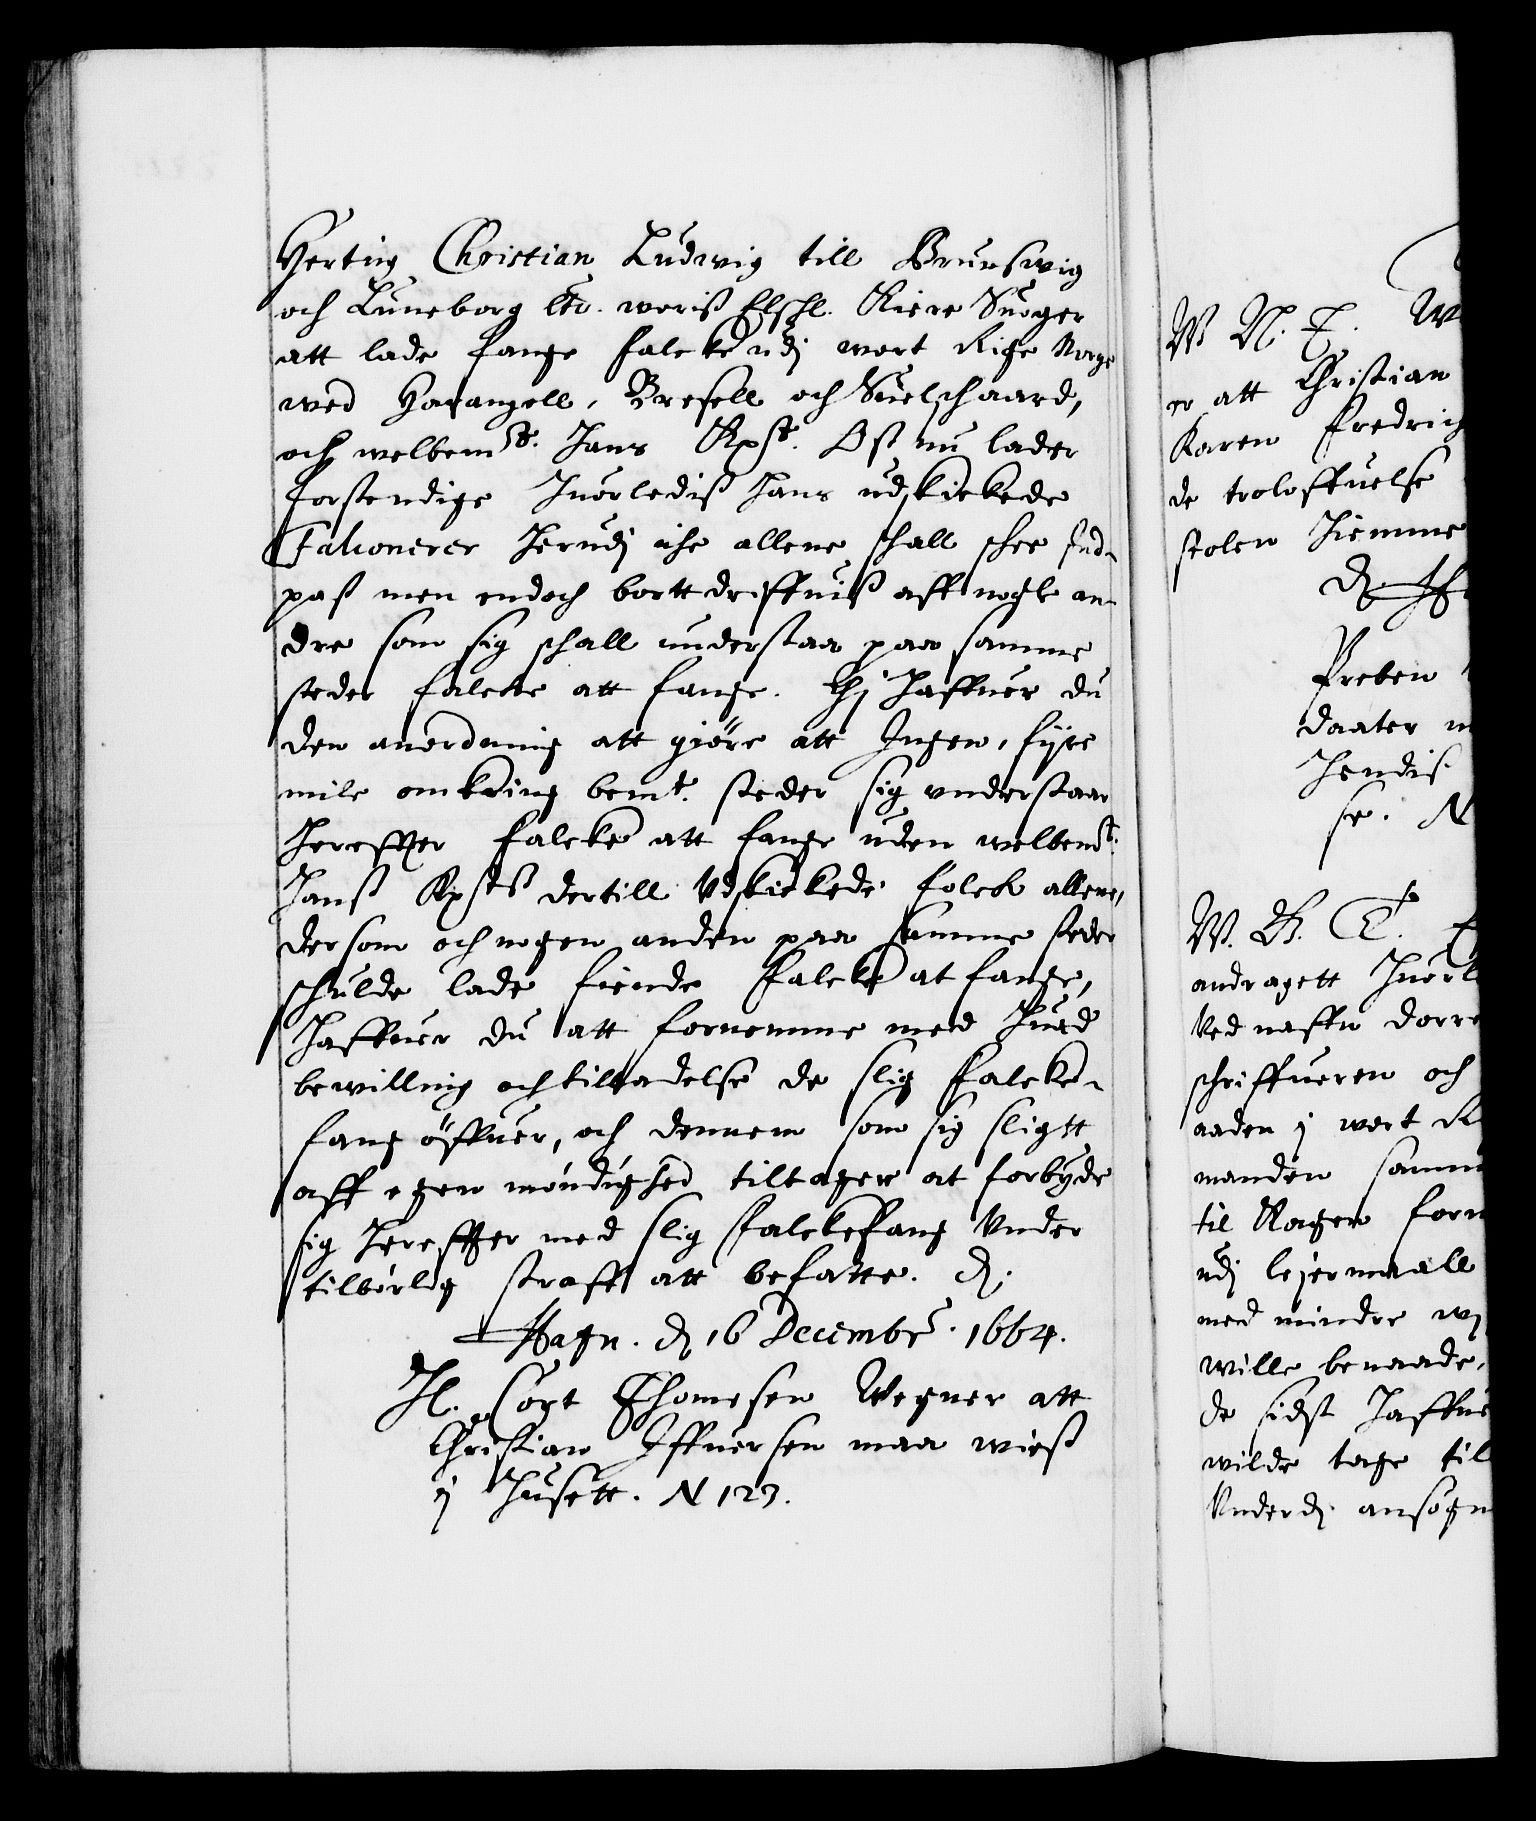 Hertug Christian Ludwig till Brunswig
och Luneborg etc. woris Elschl. Kiere Suoger
att lade fange falcke udj wort Rige Norge
wed Harangell, Bresell och Suelschaard,
och welbemte. Hans Kpst. Oß nu lader
forstendige Huorledis Hans udskickede
Falconerer Herudj icke allene schall schee Ind-
pas men endoch bortt driffuis aff nogle an-
dre som sig schall understaa paa samme
steder falcke att fange. Thj Haffuer du
den anordning att giöre att Ingen, fyre
mile omkring bemt. steder sig understaar
Hereffter falcke att fange uden welbemt.
Hans Kpsts dertill Udskickede folck allene,
dersom och nogen anden paa samme steder
schulde lade finde falcke at fange,
Haffuer du att fornemme med Huad
bewilling och tilladelse de slig falcke-
fang öffuer, och dennem som sig sligtt
aff egen mÿndighed tiltager at forbyde
sig Hereffter med slig falckefang Under
tilbörlig straff att befatte. D.
Hafn. d 16 Decembr. 1664.
H. Cort Thomesen Wegner att
Christian Iffuersen maa wies
j Husett. N 123.
W N. T. W
er att Christian
Karen fredrich
de troloffuelse
stolen Hiemme
D. H
Preben
daater
Hendis
se. N
W. G. T.
andragett Huorl
Ved naffn
schriffueren och
aaden j wort R
manden samme
til Kagen form
udj lejermaall
med mindre wj
wille benaade,
de sidst Haffue
wilde tage til
Underd. ansögn